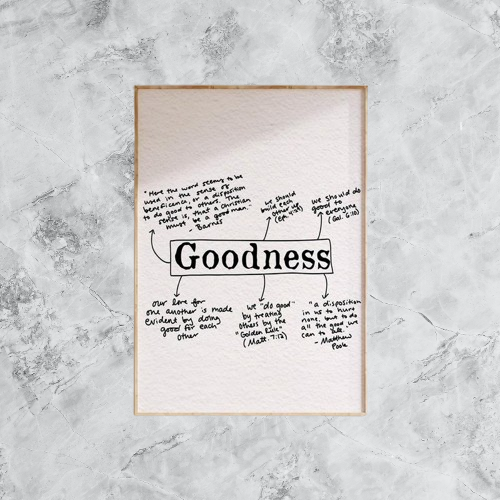 "Here the word seems to be
used in the sense of
beneficence, or a disposition
to do good to others. The
sense is, that a Christian
must be a good man."
- Barnes
we should
build each
other up
(Ef. 4:29)
we should do
good to
everyone
(Gal. 6:10)
Goodness
our love for
one another is made
evident by doing
good for each
other
we "do good"
by treating
others by the
"Golden Rule"
(Matt. 7:12)
"a disposition
in us to hurt
none, but to do
all the good we
can to all."
- Matthew
Poole